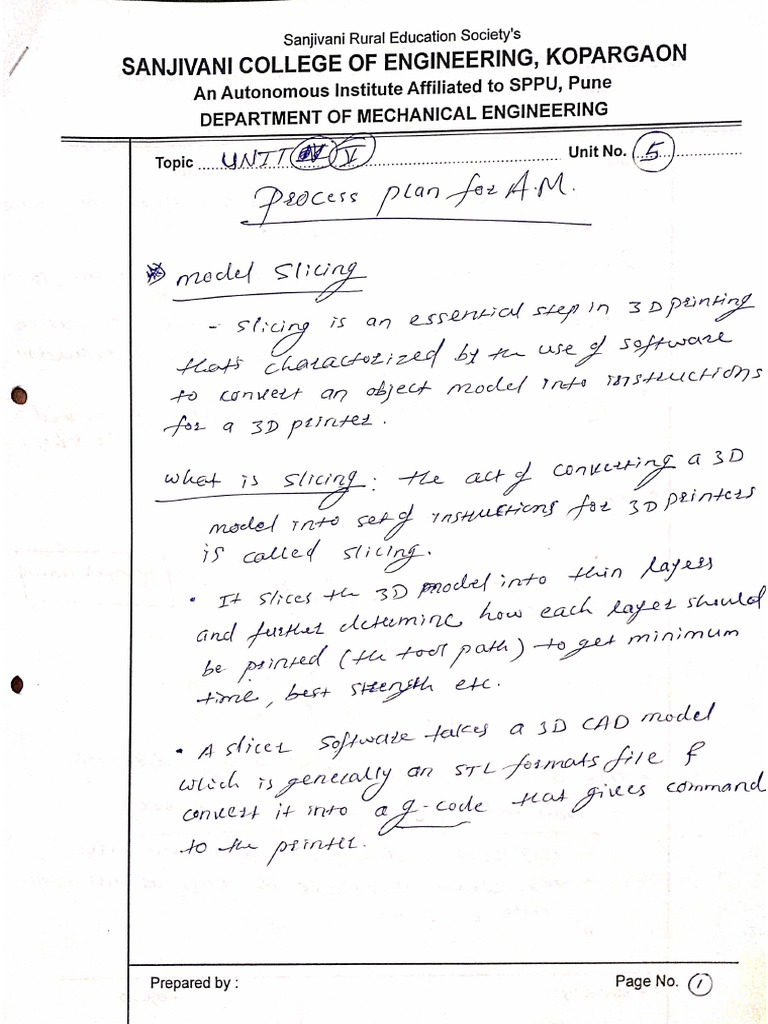 Sanjivani Rural Education Society's
SANJIVANI COLLEGE OF ENGINEERING, KOPARGAON
An Autonomous Institute Affiliated to SPPU, Pune
DEPARTMENT OF MECHANICAL ENGINEERING
Topic UNIT V Unit No. 5
Process plan for A.M.
Model Slicing
- Slicing is an essential step in 3D printing
that's charactorized by the use of software
to convert an object model into instructions
for a 3D printer.
What is slicing: The act of converting a 3D
model into set of instructions for 3D printers
is called slicing.
• It slices the 3D model into thin layers
and further determine how each layer should
be printed (the tool path) to get minimum
time, best strength etc.
• A slicer software takes a 3D CAD model
which is generally an STL formats file &
convert it into a g-code that gives command
to the printer.
Prepared by : Page No. 1